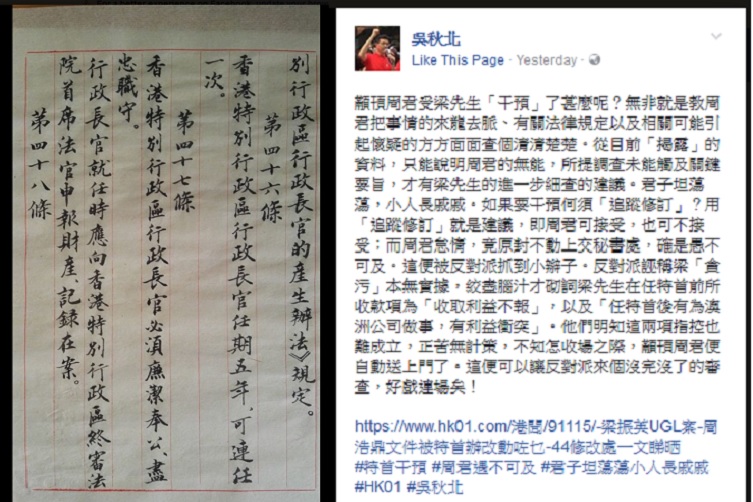 別行政區行政長官的產生辦法》規定。
第四十六條
香港特別行政區行政長官任期五年,可連任
一次。
第四十七條
香港特別行政區行政長官必須廉潔奉公、盡
忠職守。
行政長官就任時應向香港特別行政區終審法
院首席法官申報財產,記錄在案。
第四十八條
吳秋北
Like This Page · Yesterday ·
顢頇周君受梁先生「干預」了甚麼呢？無非就是教周
君把事情的來龍去脈、有關法律規定以及相關可能引
起懷疑的方方面面查個清清楚楚。從目前「揭露」的
資料，只能說明周君的無能，所提調查未能觸及關鍵
要旨，才有梁先生的進一步細查的建議。君子坦蕩
蕩，小人長戚戚。如果要干預何須「追蹤修訂」？用
「追蹤修訂」就是建議，即周君可接受，也可不接
受；而周君怠惰，竟原封不動上交秘書處，確是愚不
可及。這便被反對派抓到小辮子。反對派誣稱梁「貪
污」本無實據，絞盡腦汁才砌詞梁先生在任特首前所
收款項為「收取利益不報」，以及「任特首後有為澳
洲公司做事，有利益衝突」。他們明知這兩項指控也
難成立，正苦無計策，不知怎收場之際，顢頇周君便
自動送上門了。這便可以讓反對派來個沒完沒了的審
查，好戲連場矣！
https://www.hk01.com/港聞/91115/-梁振英UGL案-周
浩鼎文件被特首辦改動咗乜-44修改處一文睇晒
#特首干預 #周君遇不可及 #君子坦蕩蕩小人長戚戚
#HK01 #吳秋北